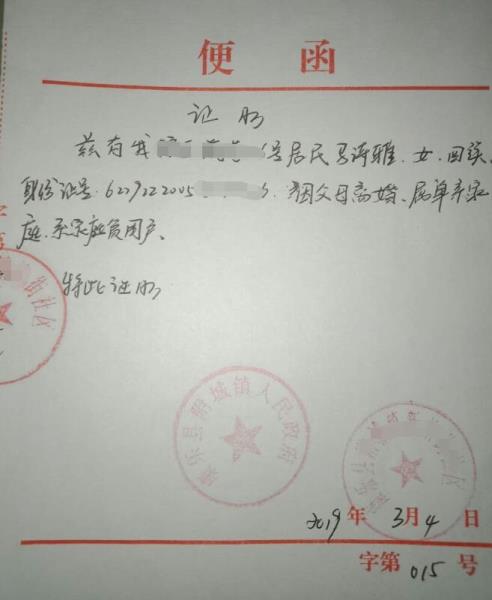 便函
证明
兹有我 号居民马海雅、女、回族、
身份证号:622922005 因父母离婚、属单亲家
庭、系家庭负困户、
特此证明
街社区
康乐县附城镇人民政府
康乐县
2019年3月4日
字第015号